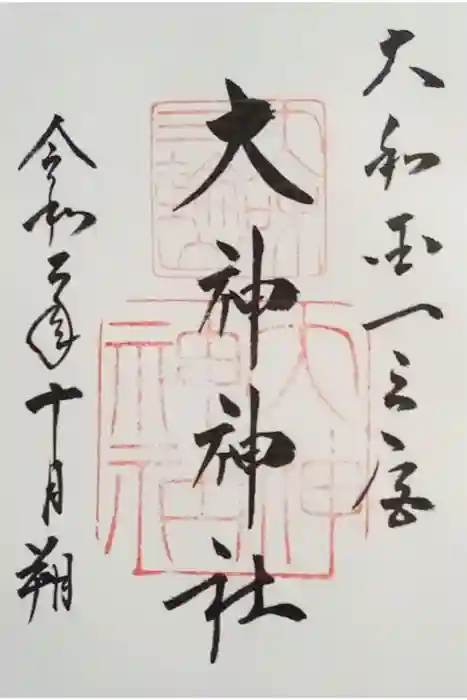 大和国一之宮
大神神社
令和二年十月朔